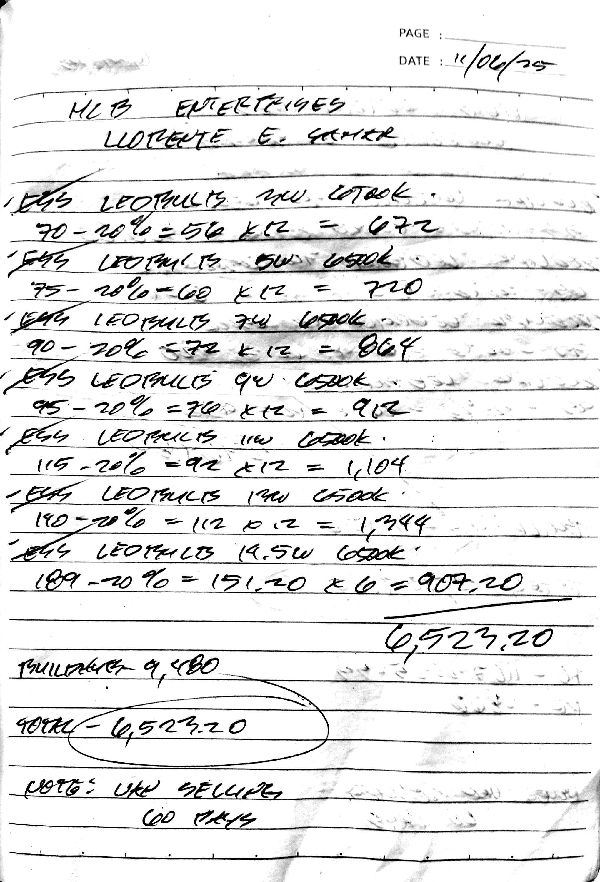 PAGE :
DATE : 11/06/25
MCB ENTERPRISES
LLORENTE E. SAMAR
ESS LEDBULB 3W 6500K.
70 - 20% = 56 x 12 = 672
ESS LEDBULB 5W 6500K
75 - 20% = 60 x 12 = 720
ESS LEDBULB 7W 6500K.
90 - 20% = 72 x 12 = 864
ESS LEDBULB 9W 6500K
95 - 20% = 76 x 12 = 912
ESS LEDBULB 11W 6500K.
115 - 20% = 92 x 12 = 1,104
ESS LEDBULB 13W 6500K.
140 - 20% = 112 x 12 = 1,344
ESS LEDBULB 14.5W 6500K.
189 - 20% = 151.20 x 6 = 907.20
6,523.20
9,480
TOTAL - 6,523.20
NOTE: SELLING
60 DAYS